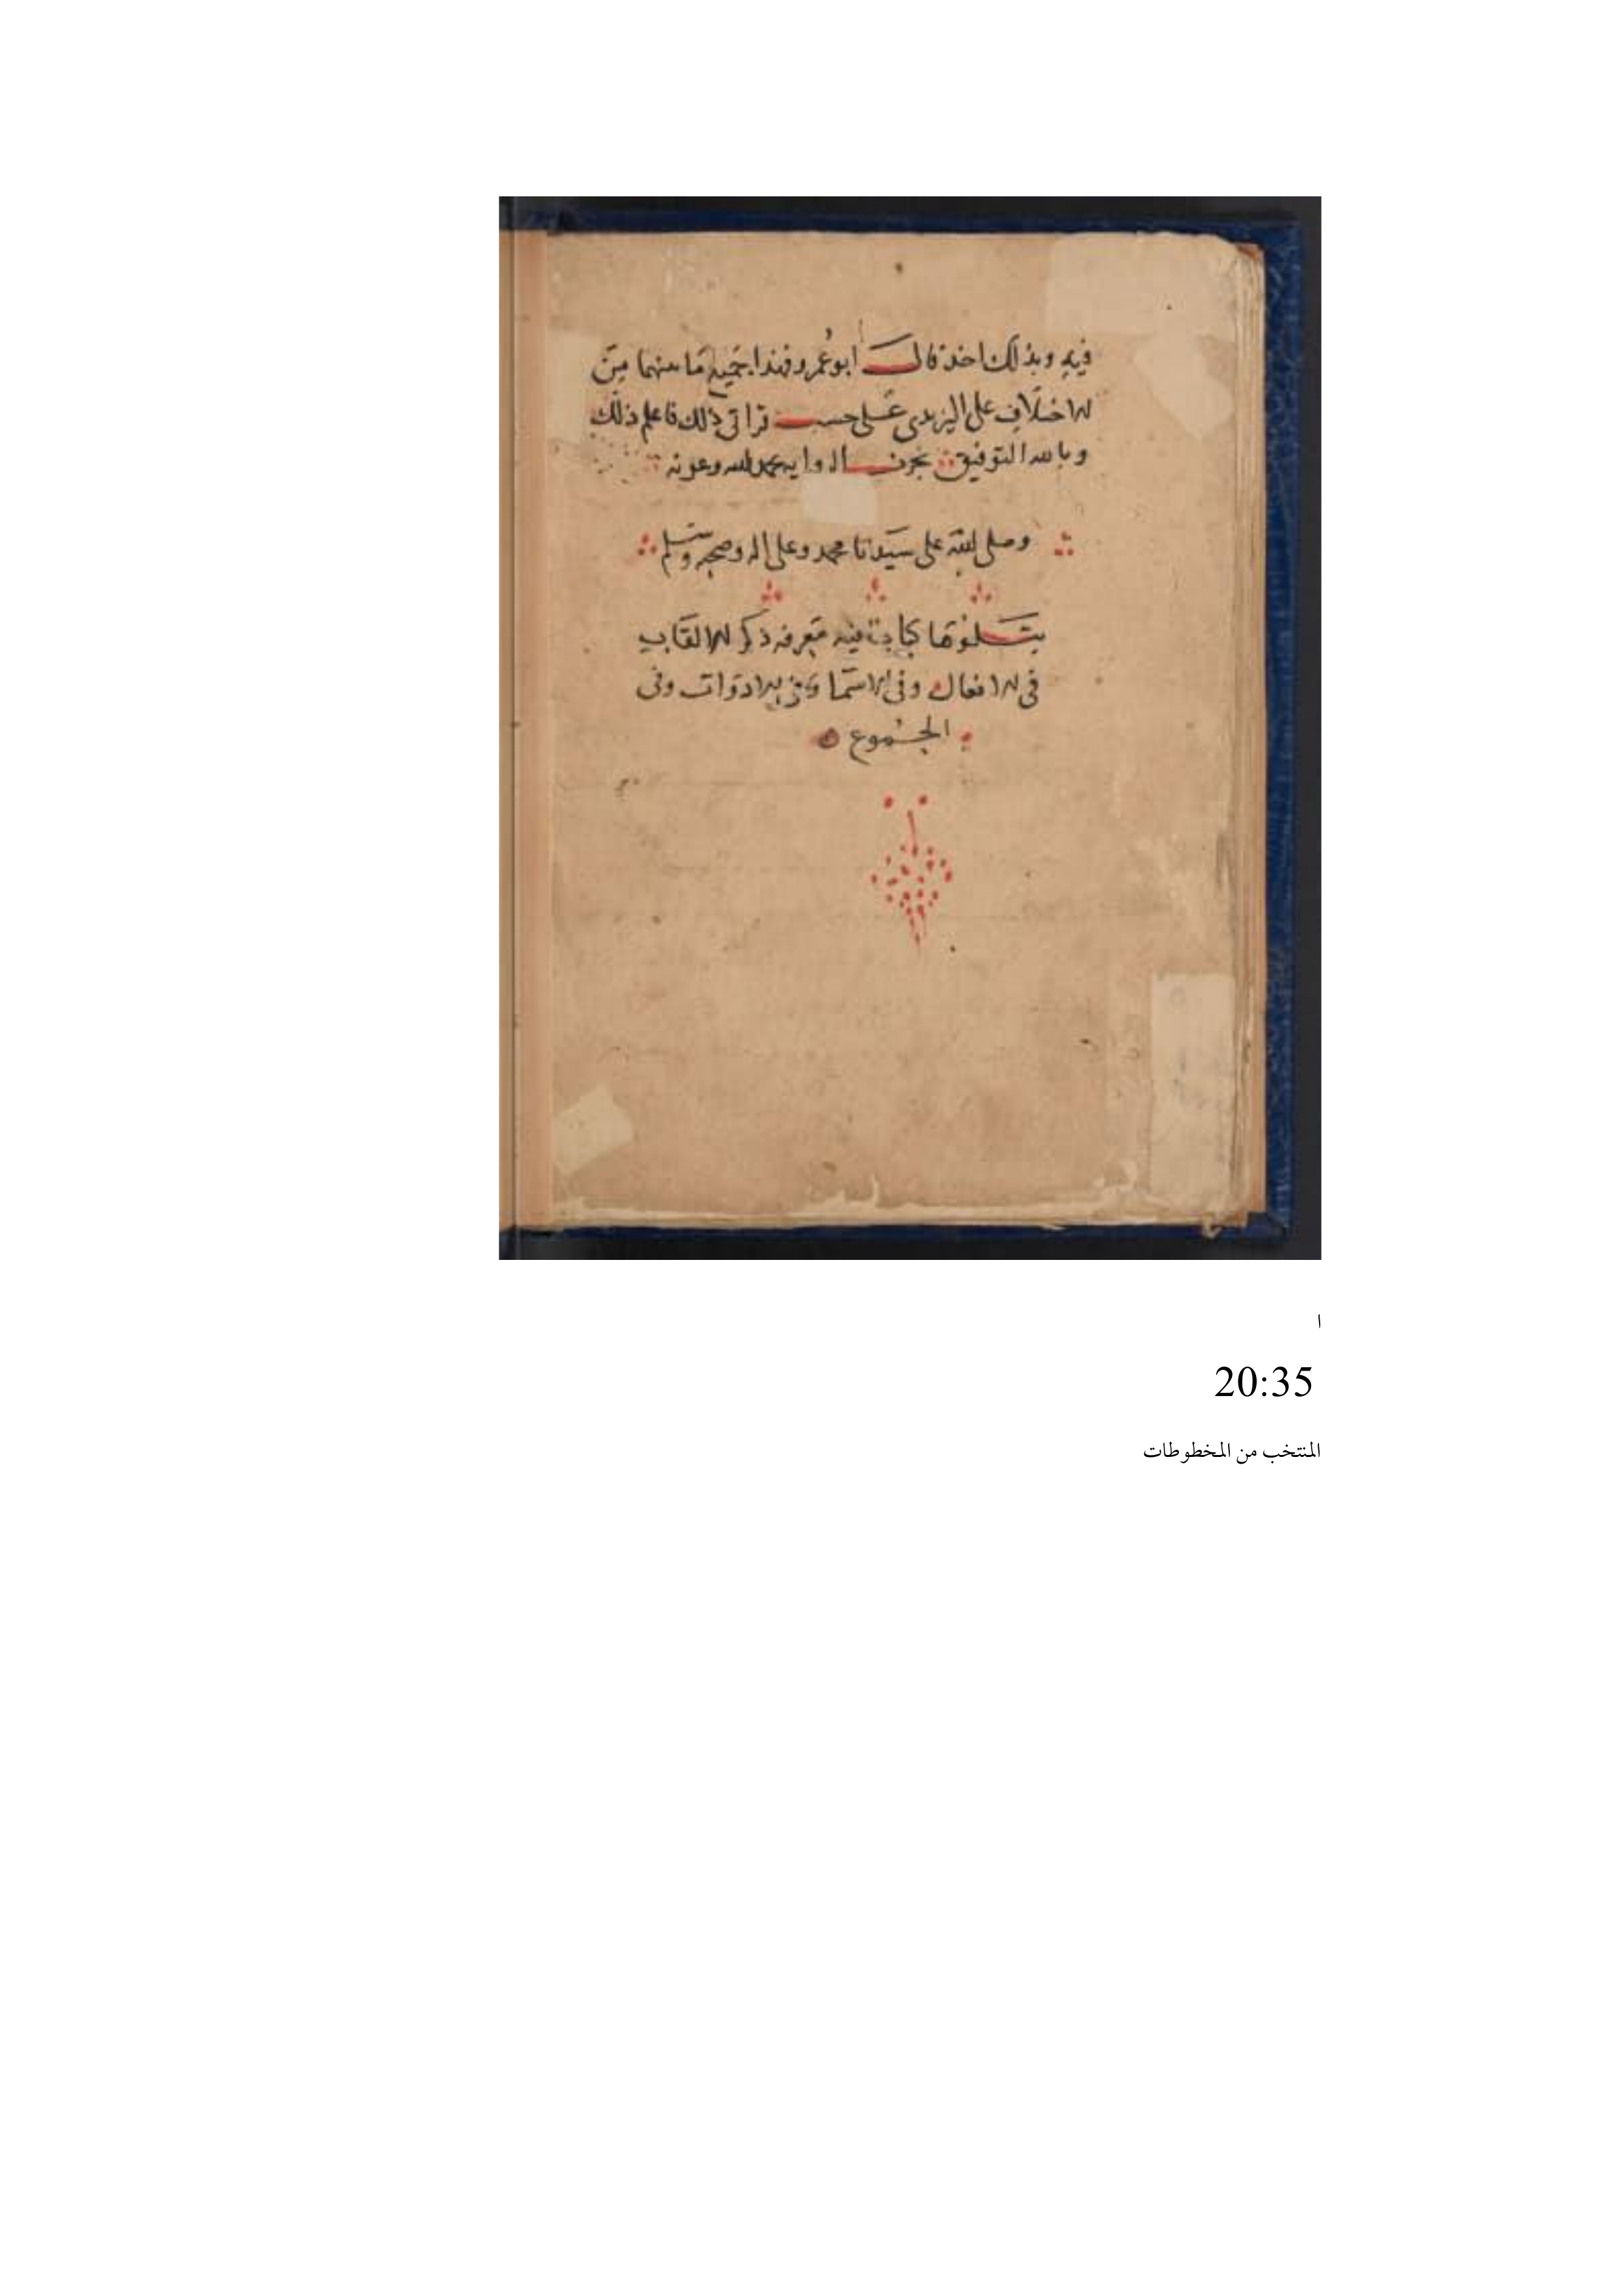 فيه وبذلك اخذ قال ابو عمرو فهذا جميع ما بينهما من
الاختلاف على اليزيدي على حسب قراتي ذلك فاعلم ذلك
وبالله التوفيق نجزت الرواية بحمد الله وعونه
وصلى الله على سيدنا محمد وعلى اله وصحبه وسلم
يتلوها كتاب فيه معرفه ذكر الالقاب
في الافعال وفي الاسما وفي الادوات وفي
الجموع
ا
20:35
المنتخب من المخطوطات